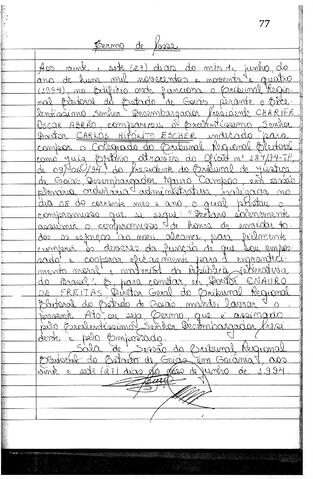 77
Termo de Posse
Aos vinte e sete (27) dias do mês de junho do
ano de hum mil novecentos e noventa e quatro
(1994), no Edifício onde funciona o Tribunal Regio
nal Eleitoral do Estado de Goiás, perante o Exce-
lentíssimo Senhor Desembargador Presidente CHARIFE
OSCAR ABRÃO, compareceu o Excelentíssimo Senhor
Doutor CARLOS HIPÓLITO ESCHER indicado para
compor o Colegiado do Tribunal Regional Eleitoral
como Juiz Efetivo através do Ofício nº
do Presidente do Tribunal de Justiça
de Goiás Desembargador Mauro Campos, em sessão
plenária ordinária administrativa realizada no
dia 08 do corrente mês e ano, o qual prestou o
compromisso que se segue: "Declaro solenemente
assumir o compromisso de honra de envidar to-
dos os esforços ao meu alcance para fielmente
cumprir os deveres da função de que sou empos-
sado e cooperar eficazmente para o engrandeci-
mento moral e material da República Federativa
do Brasil". E, para constar, eu Doutor CNAURO
DE FREITAS Diretor Geral do Tribunal Regional
Eleitoral do Estado de Goiás mandei lavrar o
presente Ato ou seja Termo que é assinado
pelo Excelentíssimo Senhor Desembargador Presi
dente e pelo Empossado.
Sala de Sessão do Tribunal Regional
Eleitoral do Estado de Goiás, em Goiânia, aos
vinte e sete (27) dias do mês de junho de 1994.